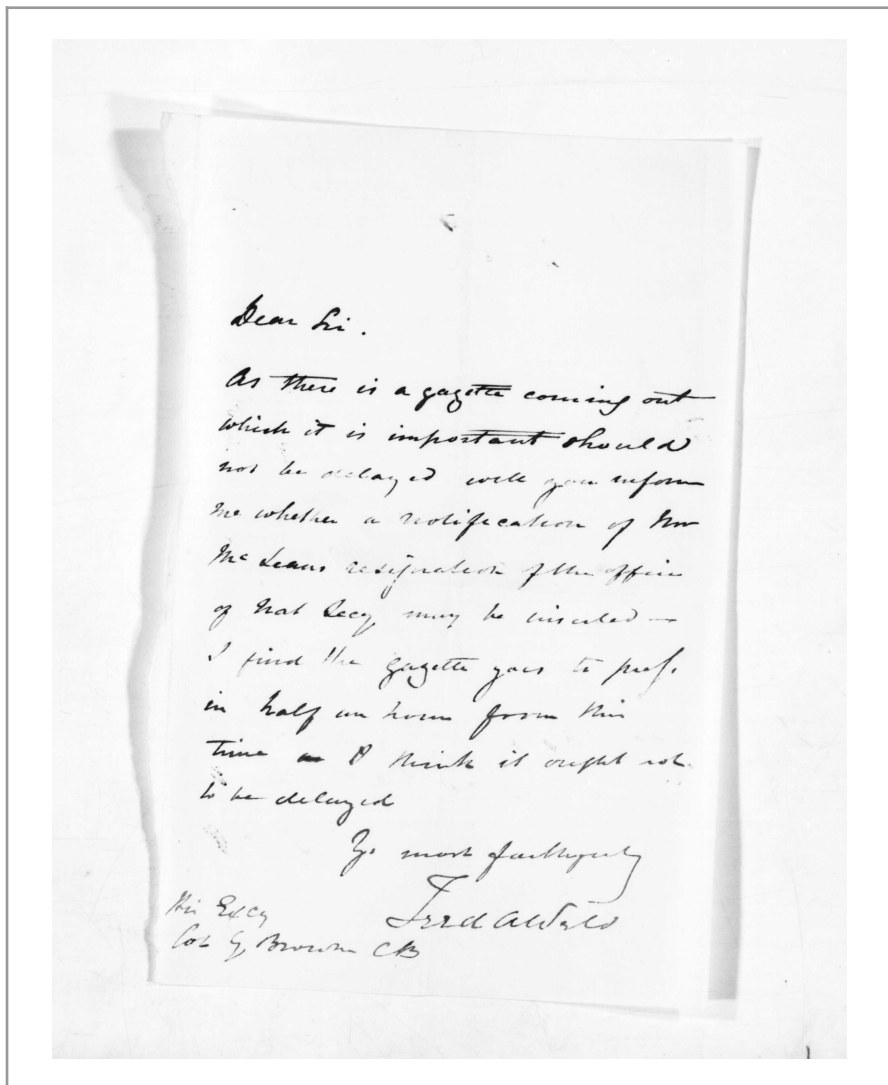 Dear Sir.
As there is a gazette coming out
which it is important should
not be delayed will you inform
me whether a notification of Mr
McLeans resignation of the office
of Nat Secy may be inserted —
I find the gazette goes to press
in half an hour from this
time I think it ought not
to be delayed
Yr most faithfully
Fred A Weld
His Excy
Col G. Browne CB